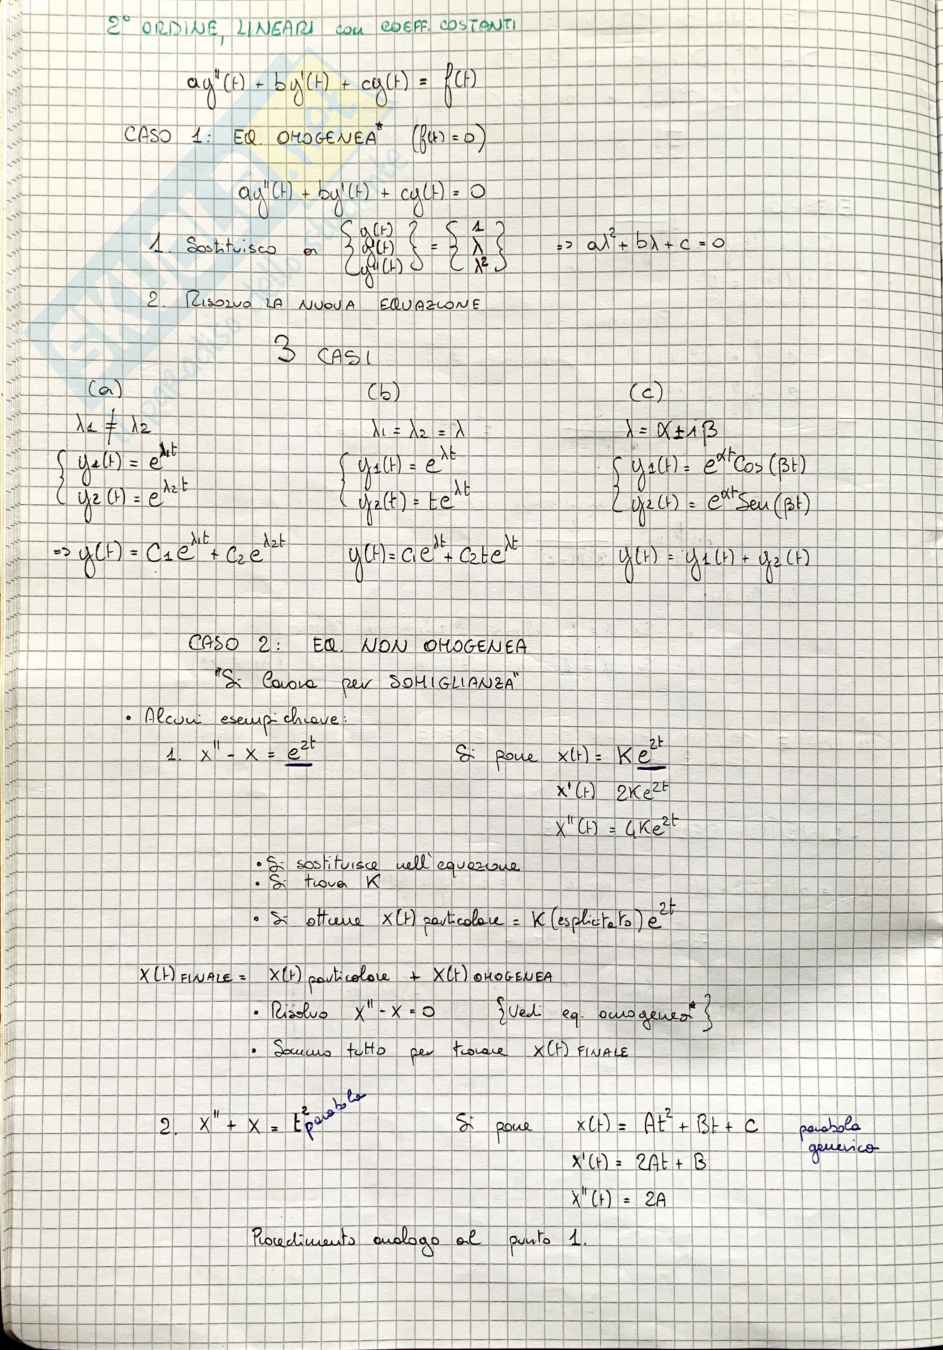 2° ORDINE, LINEARI con COEFF. COSTANTI
ay''(t) + by'(t) + cy(t) = f(t)
CASO 1: EQ. OMOGENEA* (f(t) = 0)
ay''(t) + by'(t) + cy(t) = 0
1. Sostituisco a {y(t) y'(t) y''(t)} = {1 λ λ²} => aλ² + bλ + c = 0
2. RISOLVO LA NUOVA EQUAZIONE
3 CASI
(a) (b) (c)
λ1 ≠ λ2 λ1 = λ2 = λ λ = α ± iβ
y1(t) = e^λ1t y1(t) = e^λt y1(t) = e^αt Cos(βt)
y2(t) = e^λ2t y2(t) = te^λt y2(t) = e^αt Sen(βt)
=> y(t) = C1e^λ1t + C2e^λ2t y(t) = C1e^λt + C2te^λt y(t) = y1(t) + y2(t)
CASO 2: EQ. NON OMOGENEA
"Si lavora per SOMIGLIANZA"
• Alcuni esempi chiave:
1. x'' - x = e^2t Si pone x(t) = Ke^2t
x'(t) 2Ke^2t
x''(t) = 4Ke^2t
• Si sostituisce nell'equazione
• Si trova K
• Si ottiene x(t) particolare = K (esplicitato) e^2t
X(t) FINALE = X(t) particolare + X(t) OMOGENEA
• Risolvo x'' - x = 0 {Vedi eq. omogenea*}
• Sommo tutto per trovare X(t) FINALE
2. x'' + x = t² parabola Si pone x(t) = At² + Bt + C parabola generica
x'(t) = 2At + B
x''(t) = 2A
Procedimento analogo al punto 1.